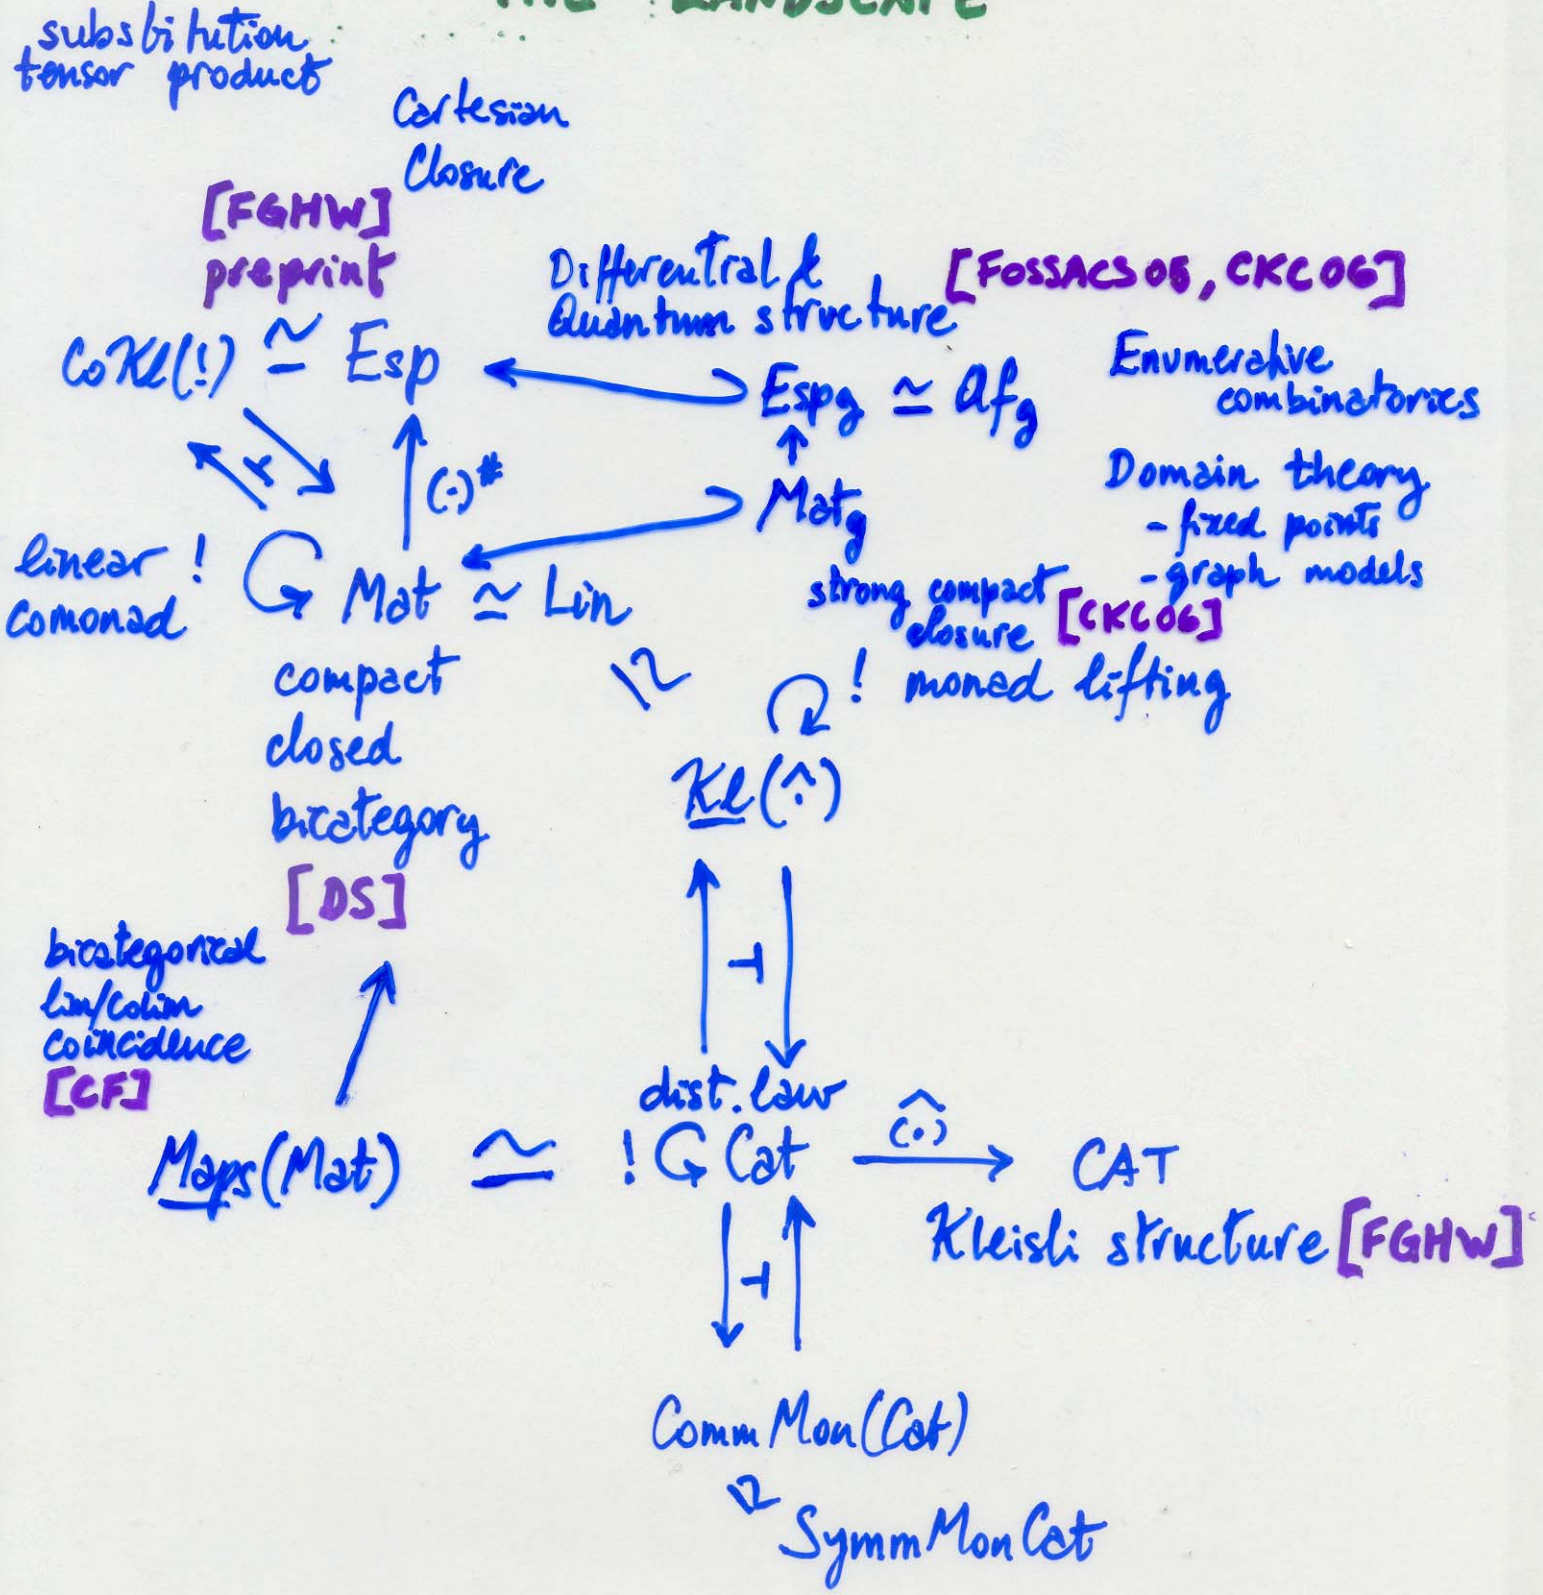 THE LANDSCAPE
substitution
tensor product
Cartesian
Closure
[FGHW]
preprint
Differential &
Quantum structure
[FOSSACS 05, CKC 06]
CoKl(!) ≃ Esp
Espg ≃ Afg
Enumerative
combinatorics
⊣
(·)#
Matg
Domain theory
- fixed points
- graph models
linear !
comonad
Mat ≃ Lin
strong compact
closure [CKC06]
compact
closed
bicategory
[DS]
≃
! monad lifting
Kl(^·)
⊣
bicategorical
lim/colim
coincidence
[CF]
dist. law
Maps(Mat) ≃ ! Cat
(^·)
CAT
Kleisli structure [FGHW]
⊣
CommMon(Cat)
≃
SymmMonCat